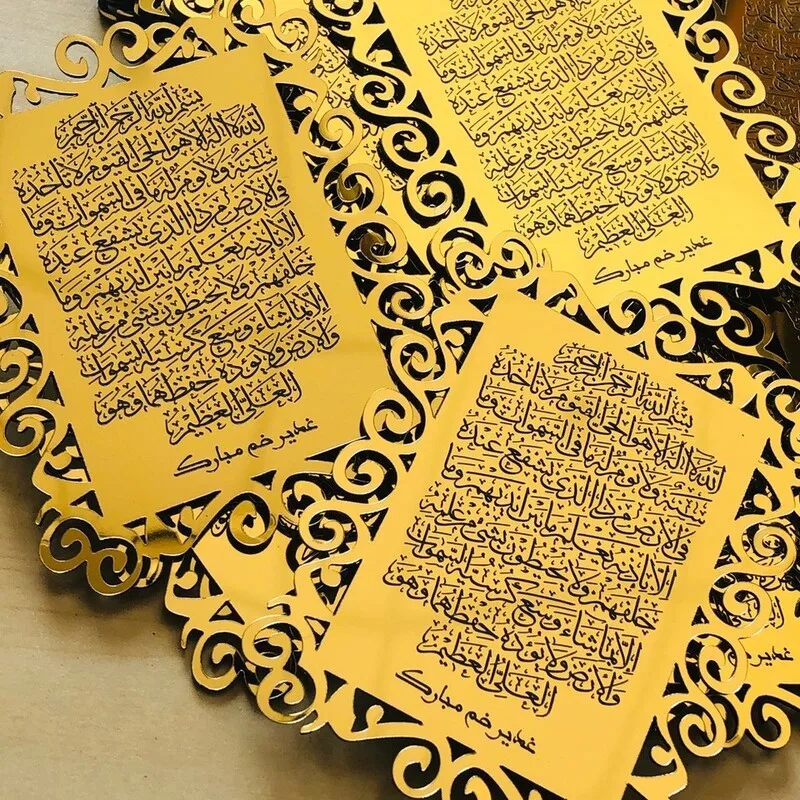 بِسْمِ اللهِ الرَّحْمنِ الرَّحيمِ
اَللهُ لا اِلهَ اِلّا هُوَ الْحَيُّ الْقَيُّومُ لا تَأْخُذُهُ
سِنَةٌ وَلا نَوْمٌ لَهُ ما فِي السَّمواتِ وَما
فِي الْاَرْضِ مَنْ ذَا الَّذي يَشْفَعُ عِنْدَهُ
اِلّا بِاِذْنِهِ يَعْلَمُ ما بَيْنَ اَيْديهِمْ وَما
خَلْفَهُمْ وَلا يُحيطُونَ بِشَيْءٍ مِنْ عِلْمِهِ
اِلّا بِما شاءَ وَسِعَ كُرْسِيُّهُ السَّمواتِ
وَالْاَرْضَ وَلا يَؤُدُهُ حِفْظُهُما وَهُوَ
الْعَلِيُّ الْعَظيمُ
غدیر خم مبارک
سِنَةٌ وَلا نَوْمٌ لَهُ ما فِي السَّمواتِ وَما
فِي الْاَرْضِ مَنْ ذَا الَّذي يَشْفَعُ عِنْدَهُ
اِلّا بِاِذْنِهِ يَعْلَمُ ما بَيْنَ اَيْديهِمْ وَما
خَلْفَهُمْ وَلا يُحيطُونَ بِشَيْءٍ مِنْ عِلْمِهِ
اِلّا بِما شاءَ وَسِعَ كُرْسِيُّهُ السَّمواتِ
وَالْاَرْضَ وَلا يَؤُدُهُ حِفْظُهُما وَهُوَ
الْعَلِيُّ الْعَظيمُ
غدیر خم مبارک
بِسْمِ اللهِ الرَّحْمنِ الرَّحيمِ
اَللهُ لا اِلهَ اِلّا هُوَ الْحَيُّ الْقَيُّومُ لا تَأْخُذُهُ
سِنَةٌ وَلا نَوْمٌ لَهُ ما فِي السَّمواتِ وَما
فِي الْاَرْضِ مَنْ ذَا الَّذي يَشْفَعُ عِنْدَهُ
اِلّا بِاِذْنِهِ يَعْلَمُ ما بَيْنَ اَيْديهِمْ وَما
خَلْفَهُمْ وَلا يُحيطُونَ بِشَيْءٍ مِنْ عِلْمِهِ
اِلّا بِما شاءَ وَسِعَ كُرْسِيُّهُ السَّمواتِ
وَالْاَرْضَ وَلا يَؤُدُهُ حِفْظُهُما وَهُوَ
الْعَلِيُّ الْعَظيمُ
غدیر خم مبارک